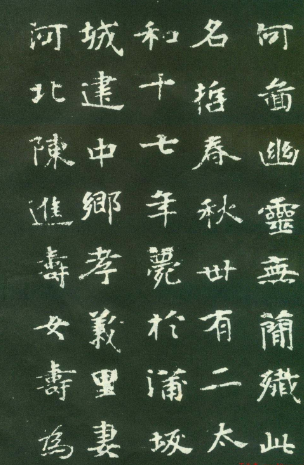 何啚幽靈無簡殲此
名哲春秋卅有二太
和十七年薨於蒲坂
城建中鄉孝義里妻
河北陳進壽女壽為